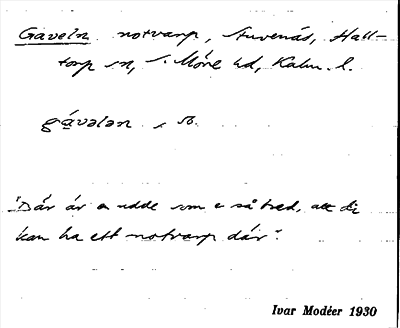 Gaveln notvarp, Stuvenäs, Hall-
torp sn, S. Möre hd, Kalm. l.
gávələn, sb.
"Där är en udde som e så bred, att di
kan ha ett notvarp där".
Ivar Modéer 1930